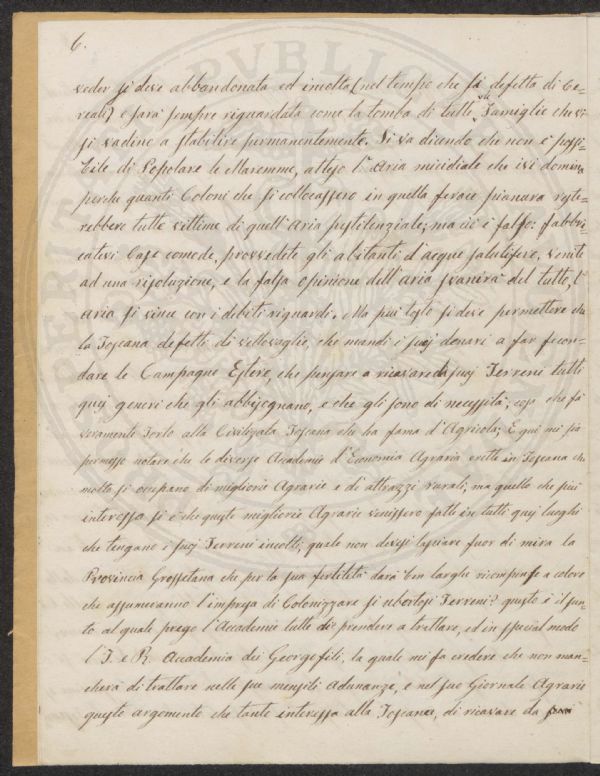 6.
veder si deve abbandonata ed incolta (nel tempo che fà difetta di Ce=
reali) e sarà sempre riguardata come la tomba di tutte le Famiglie che vi
si vadino a stabilire permanentemente. Si va dicendo che non è possi=
bile di Popolare le Maremme, atteso l'Aria micidiale che ivi domina
perche quanti Coloni che si collocassero in quella ferace pianura reste=
rebbero tutte vittime di quell'Aria pestilenziale; ma ciò è falso: fabbri=
catevi Case comode, provvedete gli abitanti d'acque salutifere, venite
ad una risoluzione, e la falsa opinione dell'aria svanirà del tutto, l'
aria si vince con i debiti riguardi. Ma piui tosto si deve permettere che
la Toscana difetti di vettovaglie, che mandi i suoj denari a far fecon=
dare le Campagne Estere, che pensare a ricavare da suoj Terreni tutti
quej generi che gli abbisognano, e che gli sono di necessità; cosa che fà
veramente Torto alla Civilizata Toscana che ha fama d'Agricola; E qui mi sia
permesso notare che le diverse Accademie d'Economia Agraria erette in Toscana che
molto si occupano di migliorie Agrarie e di attrazzi rurali; ma quello che piui
interessa si è che queste migliorie Agrarie venissero fatte in tutti quej luoghi
che tengano i suoj Terreni incolti; quale non devesi lasciare fuor di mira la
Provincia Grossetana che per la sua fertilità darà ben larghe ricompense a coloro
che assumeranno l'impresa di Colonizzare sì ubertosi Terreni? questo è il pun=
to al quale prego l'Accademie tutte di prendere a trattare, ed in special modo
l'I. e R. Accademia dei Georgofili, la quale mi fa credere che non man=
cherà di trattare nelle sue mensili Adunanze, e nel suo Giornale Agrario
questo argomento che tanto interessa alla Toscana, di ricavare da
PVBLICA